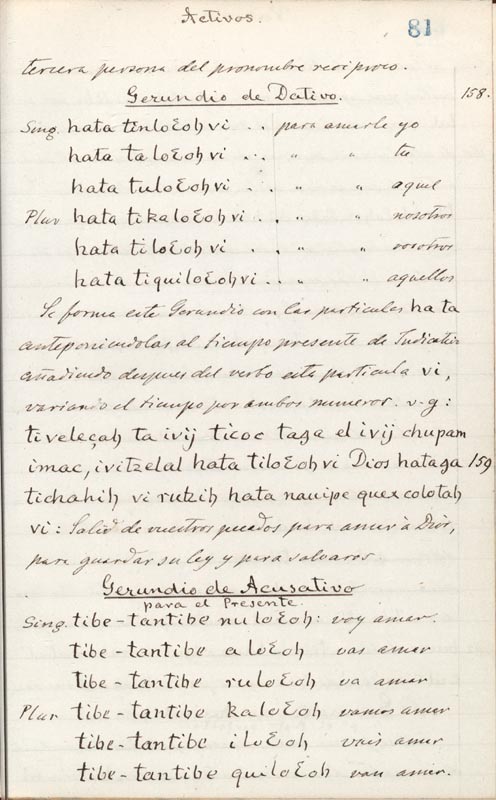 Activos.
81
tercera persona del pronombre reciproco.
Gerundio de Dativo.
158.
Sing. hata tinloƐoh vi . . para amarle yo
hata taloƐoh vi . . „ „ tu
hata tuloƐoh vi . . „ „ aquel
Plur hata tikaloƐoh vi . . „ „ nosotros
hata tiloƐoh vi . . „ „ vosotros
hata tiquiloƐoh vi . . „ „ aquellos
Se forma este Gerundio con las particulas hata
anteponiendolas al tiempo presente de Indicativo
añadiendo despues del verbo esta particula vi,
variando el tiempo por ambos numeros. v.g:
tiveleçah ta ivij ticoc taga el ivij chupam
imac, ivitzelal hata tiloƐoh vi Dios hataga
159
tichahih vi rutzih hata nauipe quex colotah
vi: Salid de vuestros pecados para amar à Dios,
para guardar su ley y para salvaros.
Gerundio de Acusativo
para el Presente.
Sing. tibe-tantibe nuloƐoh: voy amar.
tibe-tantibe aloƐoh vas amar
tibe-tantibe ruloƐoh va amar
Plur tibe-tantibe kaloƐoh vamos amar
tibe-tantibe iloƐoh vais amar
tibe-tantibe quiloƐoh van amar.